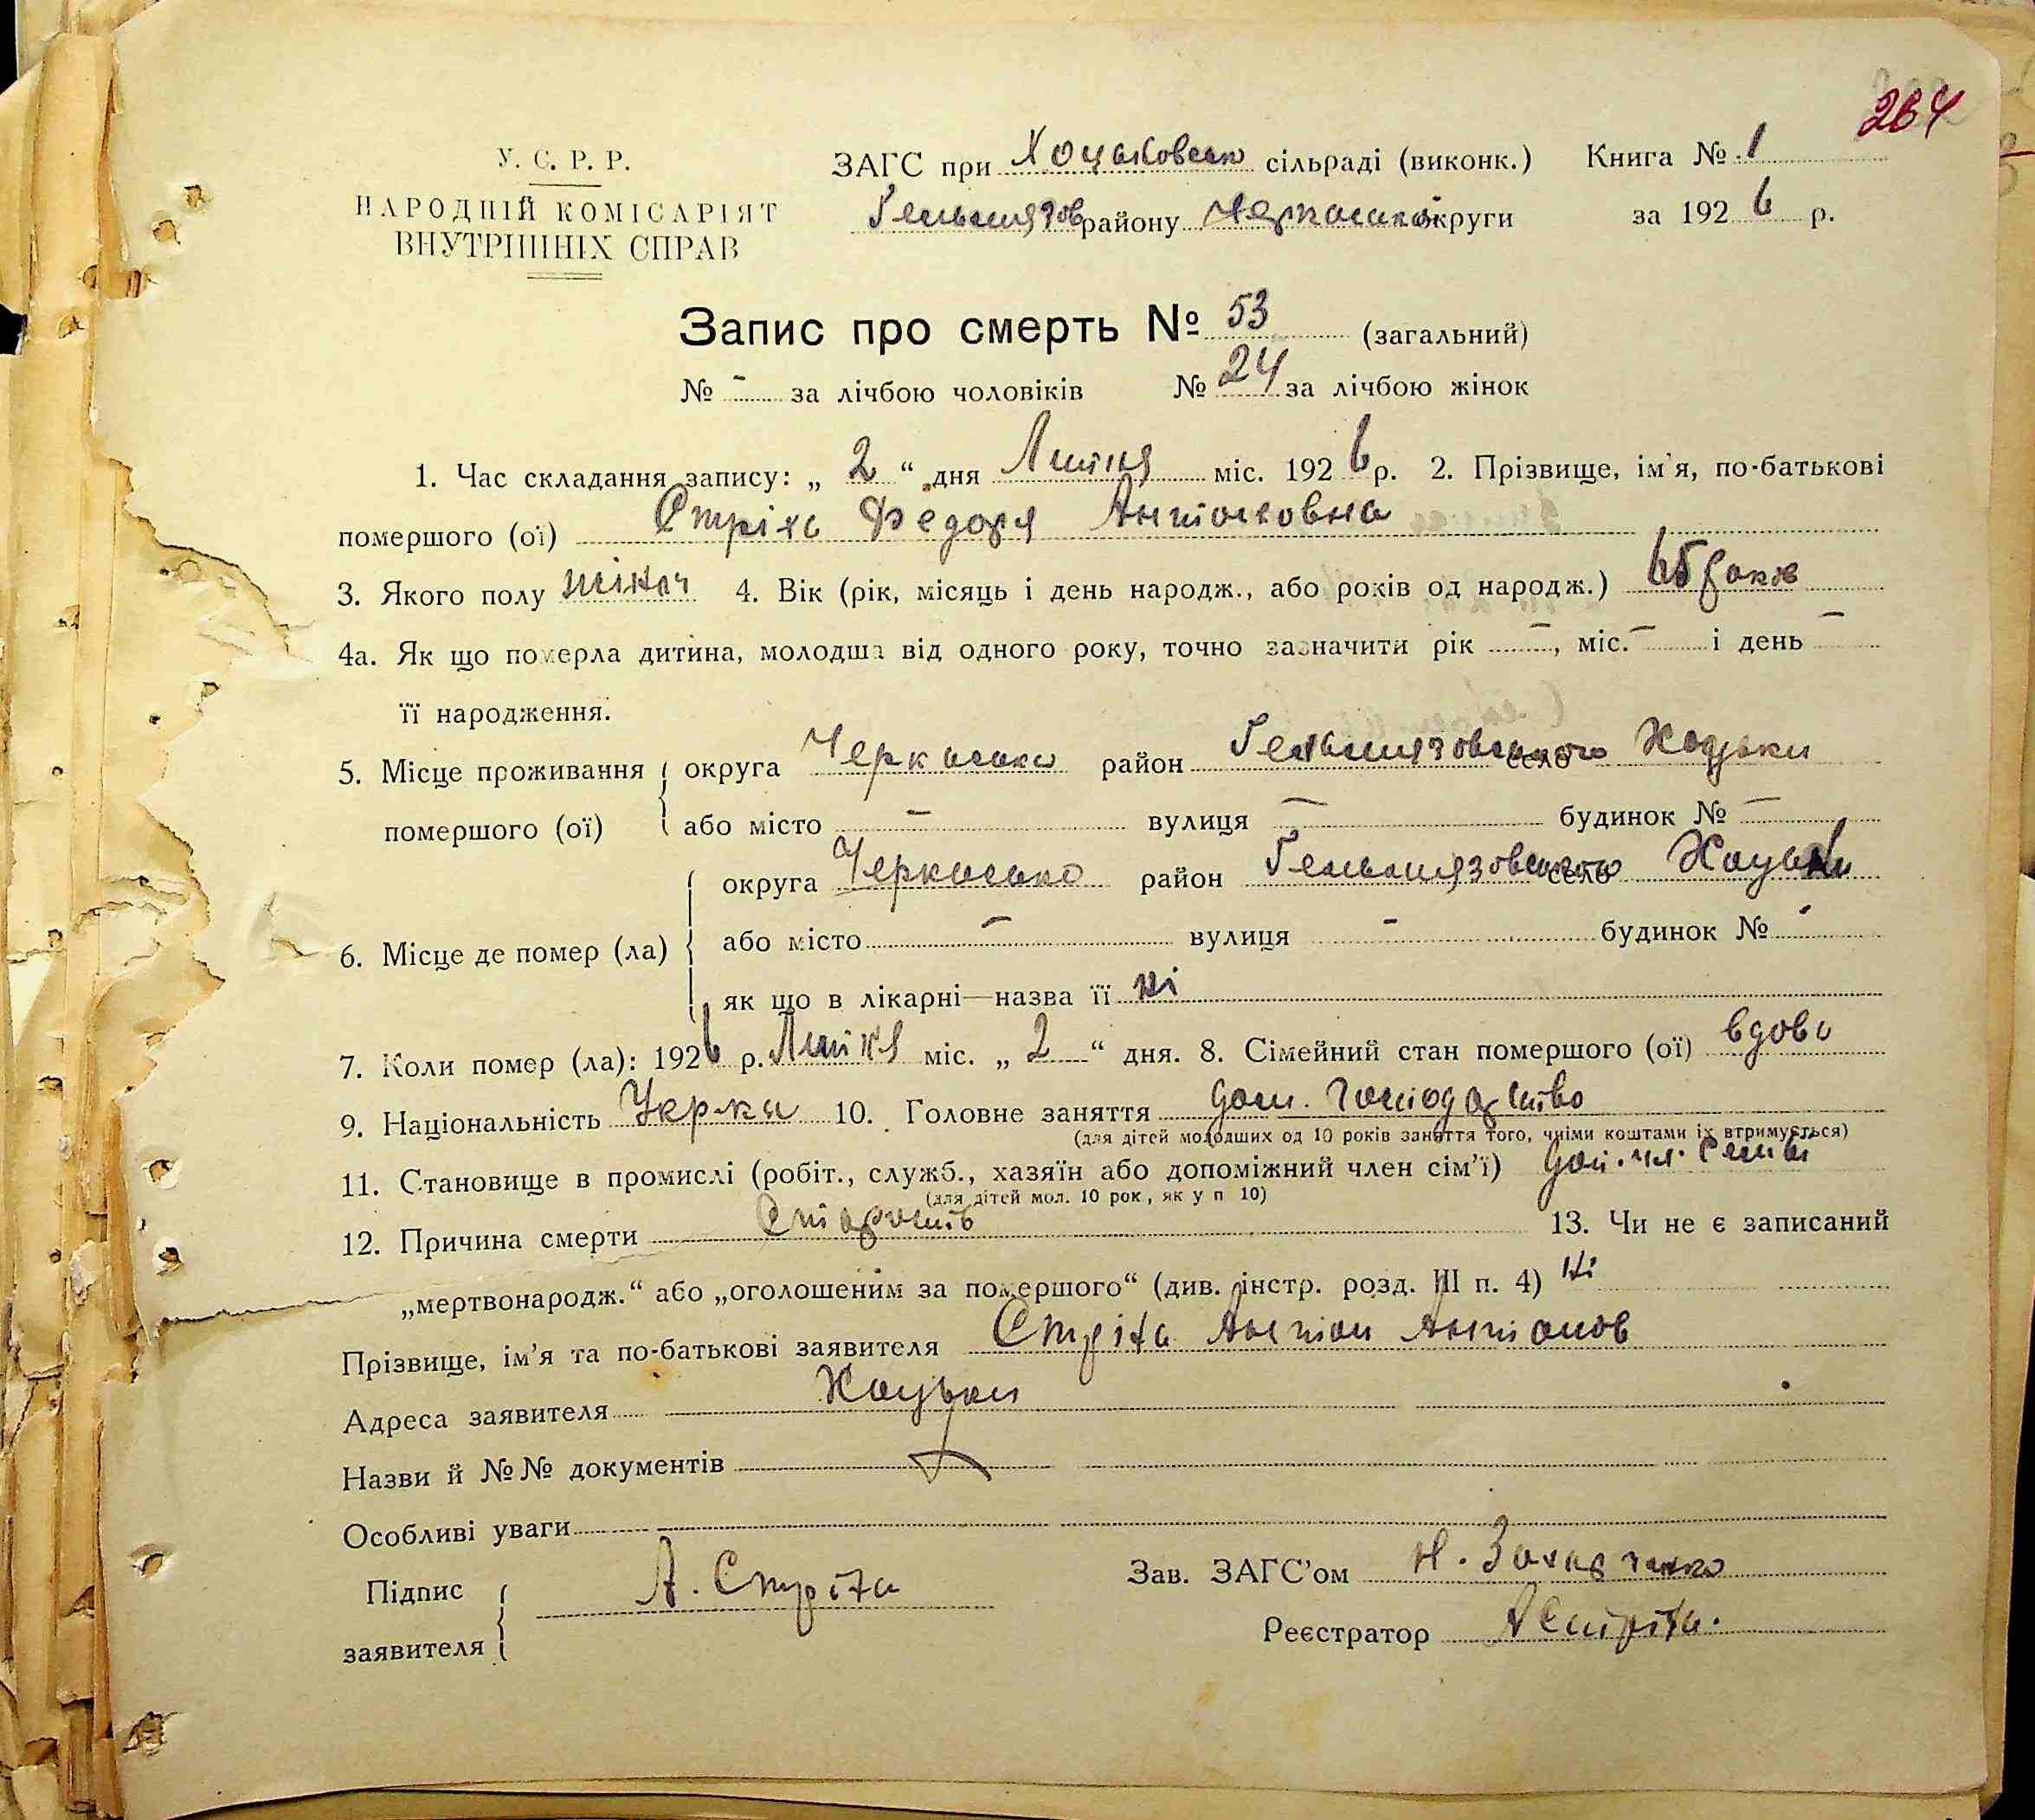 264
У. С. Р. Р.
НАРОДНІЙ КОМІСАРІЯТ
ВНУТРІШНІХ СПРАВ
ЗАГС при Хоцьковськ сільраді (виконк.) Книга № 1
Гельмязов району Черкаської округи за 1926 р.
Запис про смерть № 53 (загальний)
№ - за лічбою чоловіків № 24 за лічбою жінок
1. Час складання запису: „ 2 “ дня Липня міс. 1926 р. 2. Прізвище, ім'я, по-батькові
помершого (ої) Стріха Федора Антоновна
3. Якого полу жіноч 4. Вік (рік, місяць і день народж., або років од народж.) 65 роков
4а. Як що померла дитина, молодша від одного року, точно зазначити рік —, міс. — і день —
її народження.
5. Місце проживання помершого (ої) округа Черкаська район Гельмязовського село Хоцьки
або місто — вулиця — будинок № —
6. Місце де помер (ла) округа Черкасько район Гельмязовського село Хоцьки
або місто — вулиця - будинок № -
як що в лікарні—назва її ні
7. Коли помер (ла): 1926 р. Липня міс. „ 2 “ дня. 8. Сімейний стан помершого (ої) вдова
9. Національність Укр-ка 10. Головне заняття дом. господарство
(для дітей молодших од 10 років заняття того, чиїми коштами їх втримується)
11. Становище в промислі (робіт., служб., хазяїн або допоміжний член сім'ї) доп. чл. семьи
(для дітей мол. 10 рок, як у п 10)
12. Причина смерти Старость 13. Чи не є записаний
„мертвонародж.“ або „оголошеним за помершого“ (див. інстр. розд. III п. 4) Ні
Прізвище, ім'я та по-батькові заявителя Стріха Антон Антонов
Адреса заявителя Хоцьки
Назви й №№ документів —
Особливі уваги
Підпис заявителя А. Стріха
Зав. ЗАГС'ом Н. Захарченко
Реєстратор А Стріха.